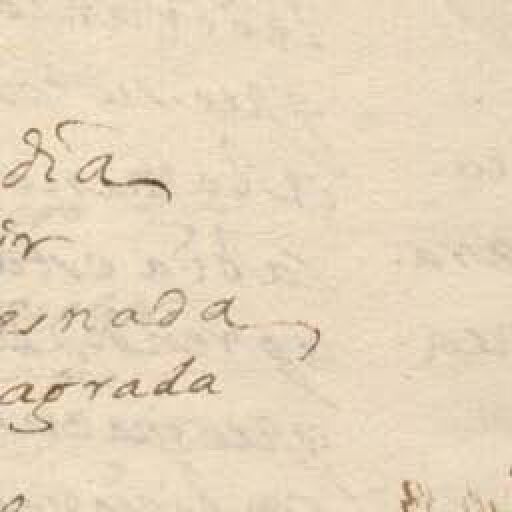 dia
ir
esnada,
agrada